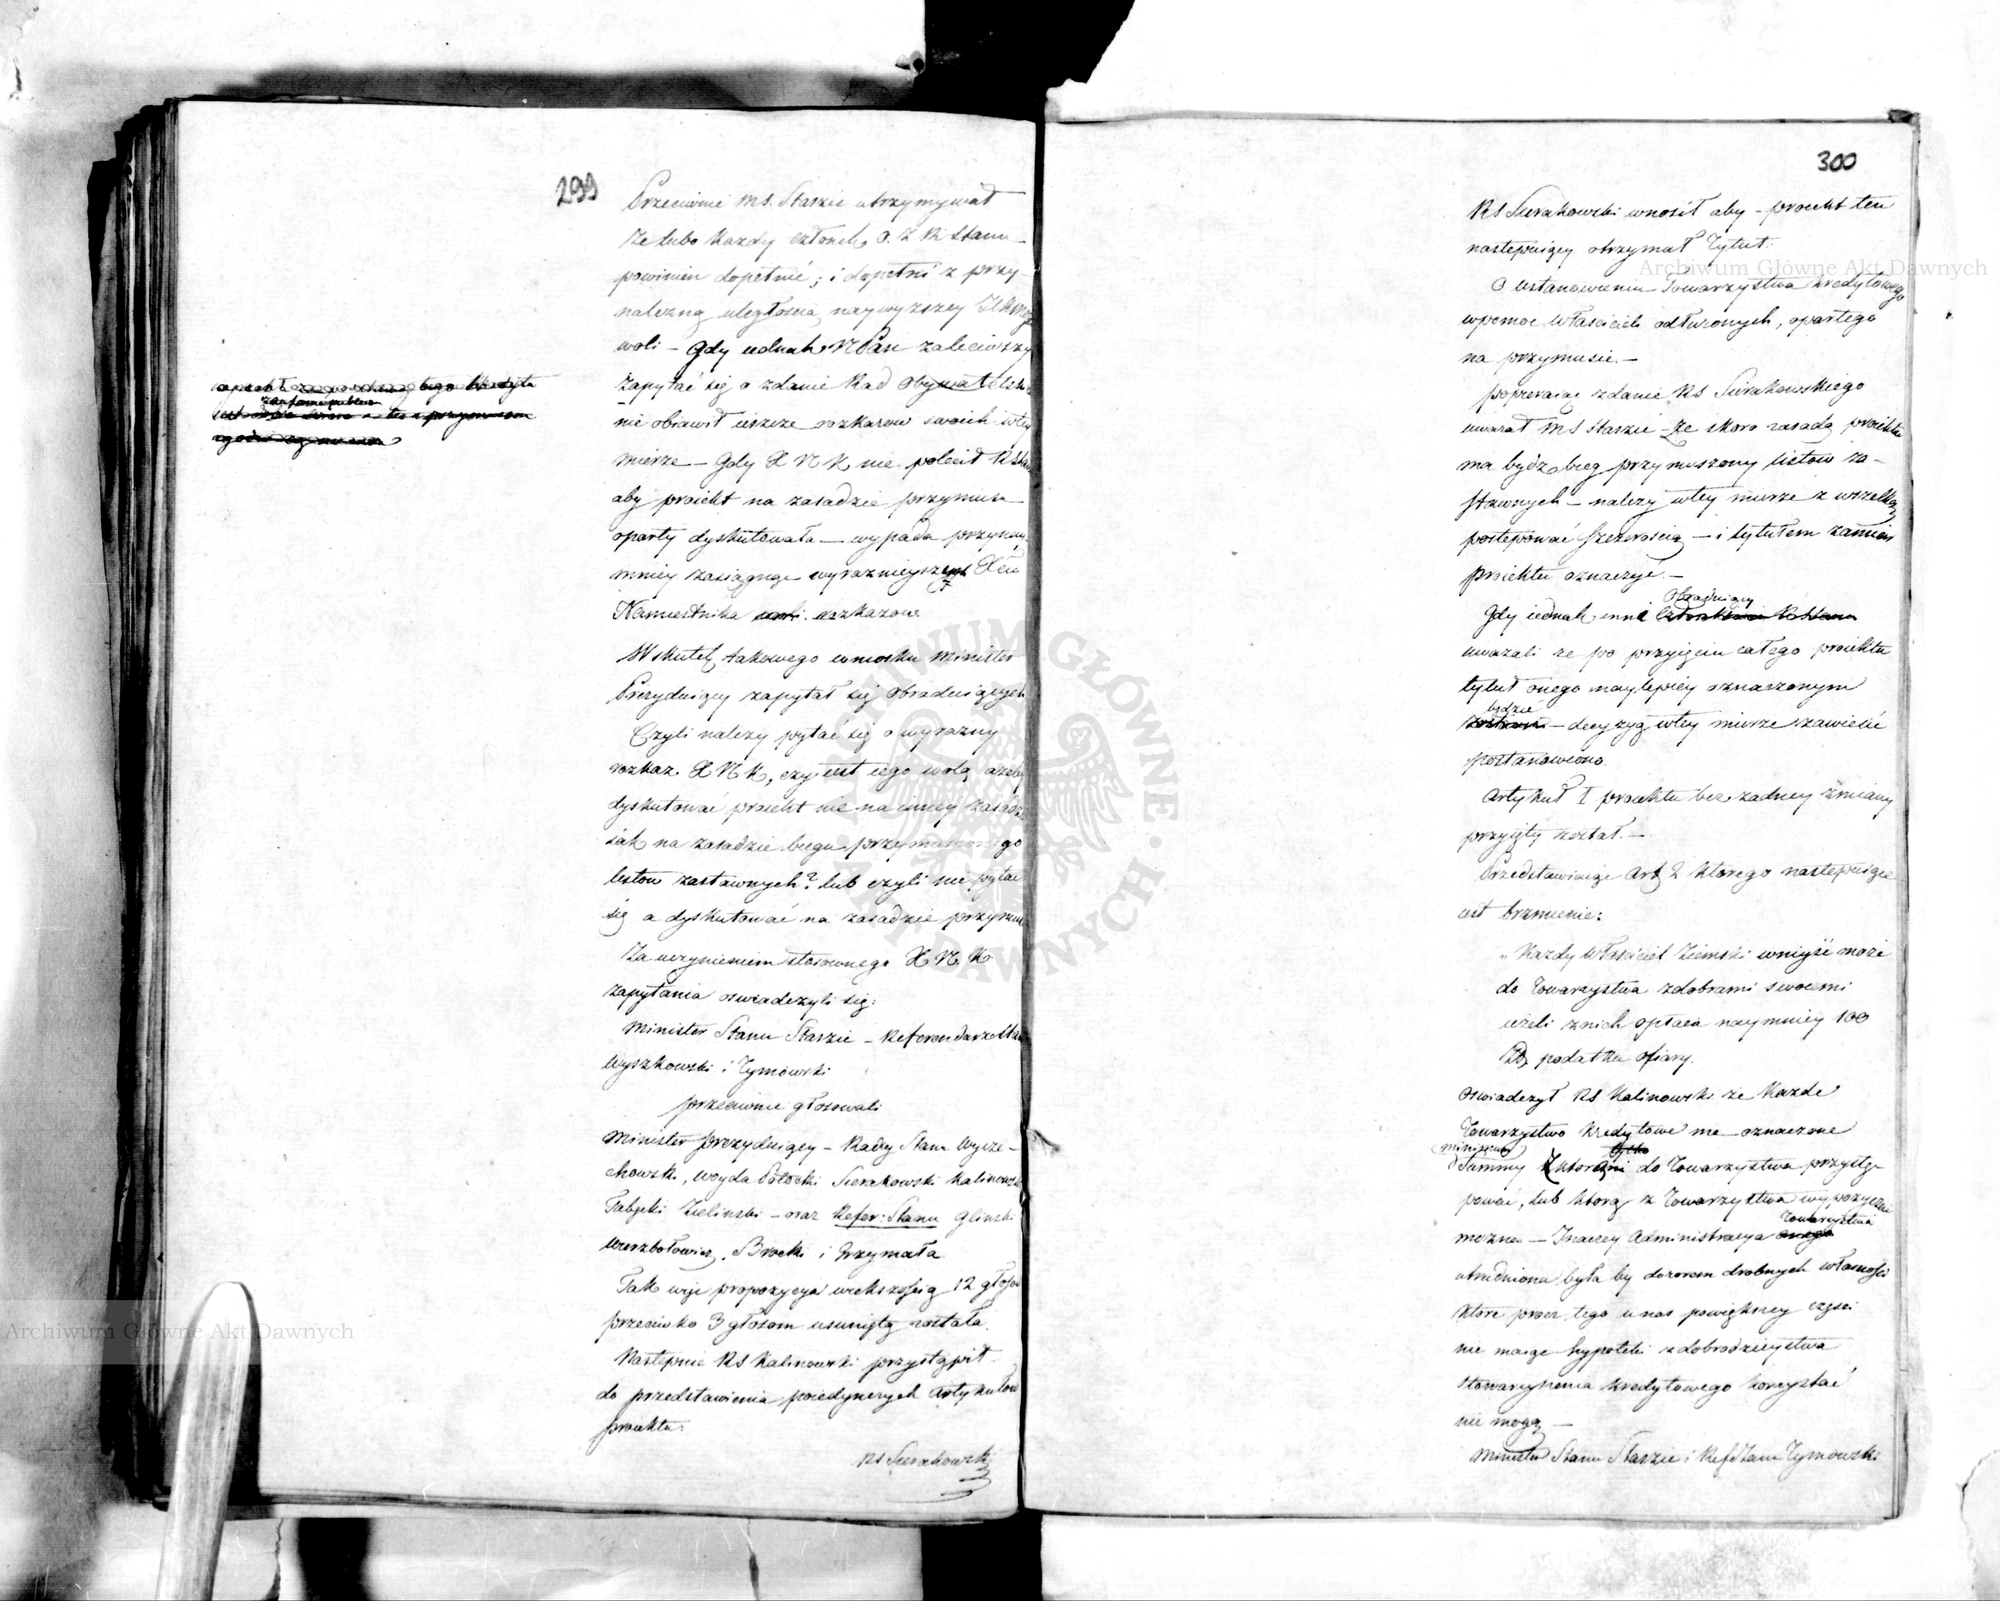 299
Przeciwnie MS. Staszic utrzymywał
że lubo każdy członek O. Z R Stanu
powinien dopełnić; i dopełni z przy
należną uległością naywyższey
woli – Gdy iednak NPan zaleciwszy
zapytać się o zdanie Rad Obywatelsk
nie obiawił ieszcze rozkazow swoich wtey
mierze – Gdy X N K nie polecił R Sta
aby proiekt na zasadzie przymusu
oparty dyskutowała – wypada przynay
mniey zasiągnąc wyraznieyszych Xcia
Namiestnika rozkazow.
Wskutek takowego wniosku Minister
Prezyduiący zapytał się obraduiących
Czyli należy pytać się o wyrazny
rozkaz X N K, czy iest iego wolą azeby
dyskutować proiekt nie na inney zasadzie
iak na zasadzie biegu przymuszonego
listow zastawnych? lub czyli nie pytać
się a dyskutować na zasadzie przymusu
Za uczynieniem stosownego X N. K
zapytania oswiadczyli się:
Minister Stanu Staszic – Referendarze Stanu
Wyszkowski i Tymowski
przeciwnie głosowali
Minister prezyduiący – Radcy Stanu Wycze-
chowski, Woyda Potocki Sierakowski Kalinowski
Zielinski – oraz Refer: Stanu Glinski
Wierzbołowicz, Brocki i Grzymała
Tak więc propozycya wiekszością 12 głosow
przeciwko 3 głosom usuniętą została.
Następnie RS Kalinowski przystąpił
do przedstawienia poiedynczych Artykułow
proiektu.
RS Sierakowski
300
RS Sierakowski wnosił aby – proiekt ten
następuiący otrzymał Tytuł:
O ustanowieniu Towarzystwa Kredytowego
wpomoc Właścicieli odłużonych, opartego
na przymusie. –
popieraiąc zdanie RS Sierakowskiego
uważał MS Staszic – Ze skoro zasadą proiektu
ma bydz bieg przymuszony listow za-
stawnych – należy wtey mierze z wszelką
postępować szczerością – i tytułem zamiar
proiektu oznaczyć. –
Obraduiący
Gdy iednak inni
uważali ze po przyięciu całego proiektu
tytuł onego naylepiey oznaczonym
będzie
– decyzyą wtey mierze zawiesić
postanowiono.
Artykuł I proiektu bez zadney zmiany
przyięty został. –
Przedstawiaiąc Art 2 ktorego następuiące
iest brzmienie:
„Każdy Właściciel Ziemski wniyść może
do Towarzystwa zdobrami swoiemi
ieżeli znich opłaca naymniey 100
Zł podatku ofiary.
oswiadczył RS Kalinowski ze Każde
Towarzystwo Kredytowe ma oznaczone
minimum tylko
Summy z ktorą do Towarzystwa przystę-
pować, lub ktorą z Towarzystwa wypożyczać
Towarzystwa
mozna – Inaczey Administracya onego
utrudniona była by dozorem drobnych własności
ktore procz tego u nas powiększey części
nie maiąc hypoteki z dobrodzieystwa
stowarzyszenia kredytowego korzystać
nie mogą –
Minister Stanu Staszic i Ref Stanu Tymowski
Archiwum Główne Akt Dawnych
Archiwum Główne Akt Dawnych
ARCHIWUM GŁÓWNE AKT DAWNYCH